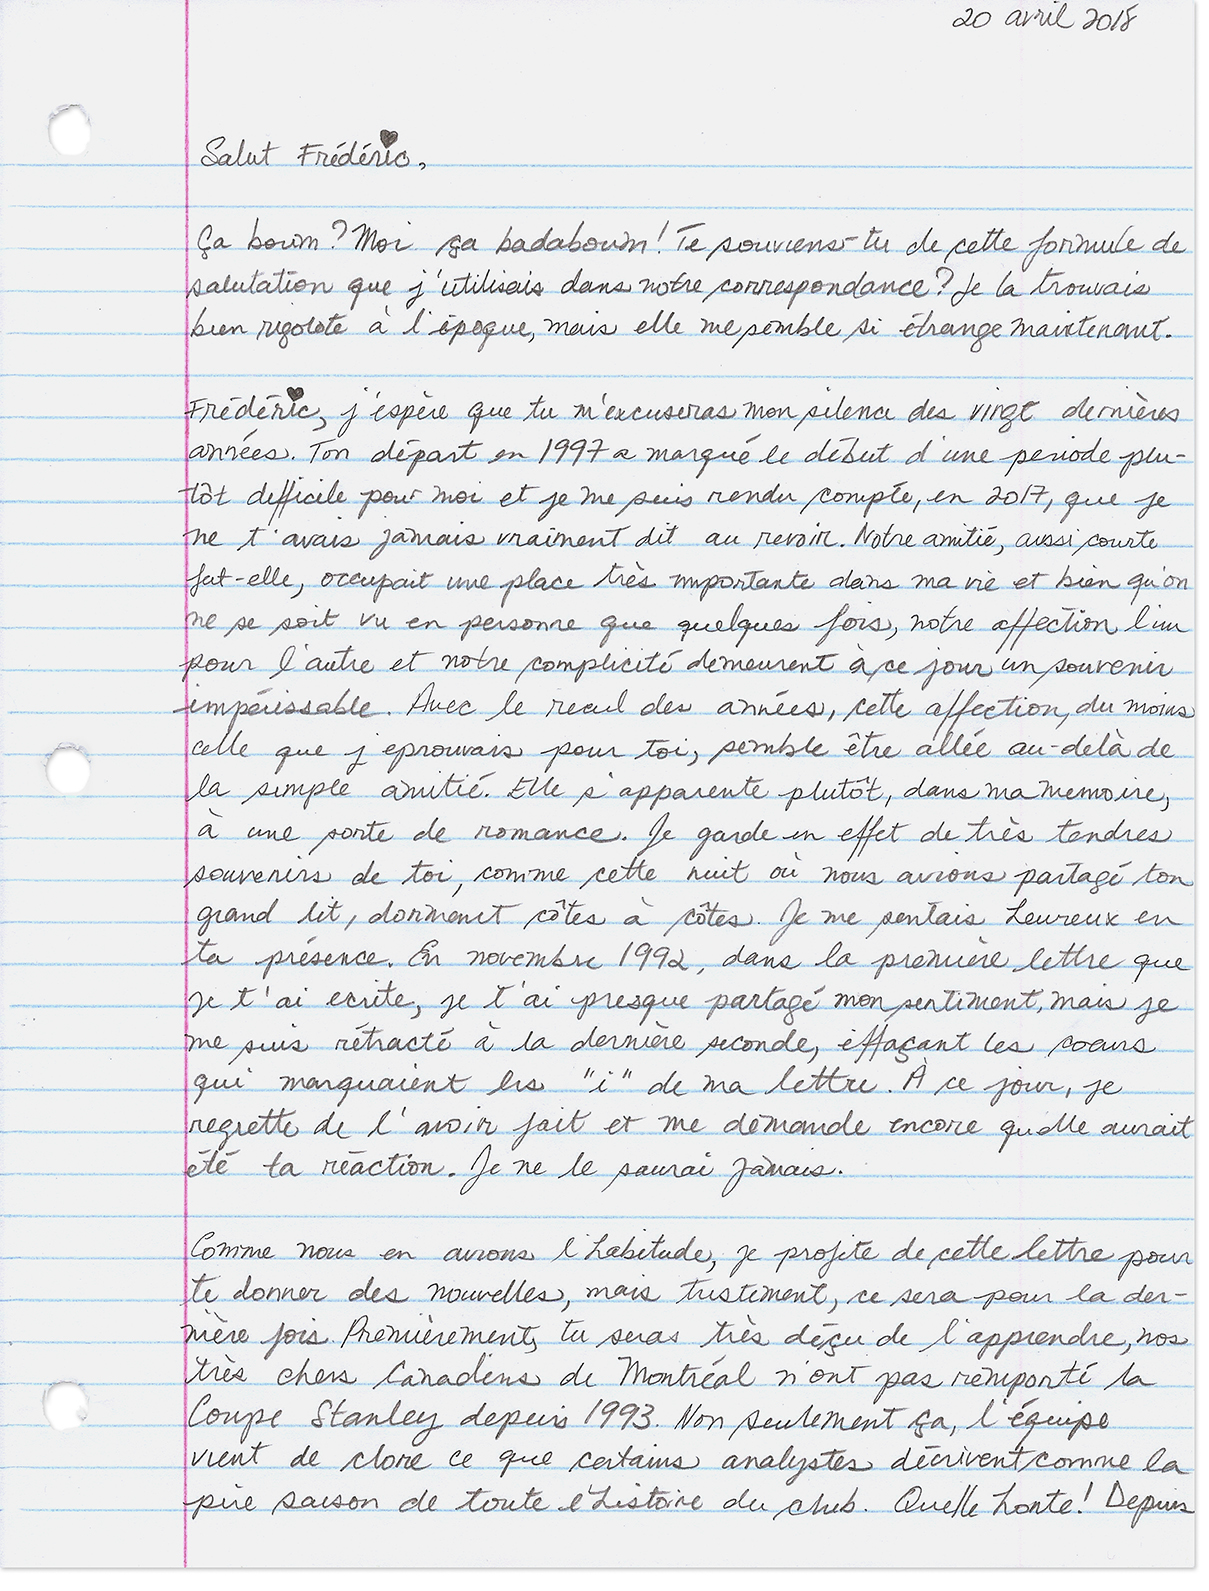 20 avril 2018
Salut Frédéric,
Ça boum? Moi ça badaboum! Te souviens-tu de cette formule de
salutation que j'utilisais dans notre correspondance? Je la trouvais
bien rigolote à l'époque, mais elle me semble si étrange maintenant.
Frédéric, j'espère que tu m'excuseras mon silence des vingt dernières
années. Ton départ en 1997 a marqué le début d'une période plu-
tôt difficile pour moi et je me suis rendu compte, en 2017, que je
ne t'avais jamais vraiment dit au revoir. Notre amitié, aussi courte
fut-elle, occupait une place très importante dans ma vie et bien qu'on
ne se soit vu en personne que quelques fois, notre affection l'un
pour l'autre et notre complicité demeurent à ce jour un souvenir
impérissable. Avec le recul des années, cette affection, du moins
celle que j'eprouvais pour toi, semble être allée au-delà de
la simple amitié. Elle s'apparente plutôt, dans ma memoire,
à une sorte de romance. Je garde en effet de très tendres
souvenirs de toi, comme cette nuit où nous avions partagé ton
grand lit, dormant côtes à côtes. Je me sentais heureux en
ta présence. En novembre 1992, dans la première lettre que
je t'ai ecrite, je t'ai presque partagé mon sentiment, mais je
me suis rétracté à la dernière seconde, effaçant les coeurs
qui marquaient les "i" de ma lettre. À ce jour, je
regrette de l'avoir fait et me demande encore quelle aurait
été ta réaction. Je ne le saurai jamais.
Comme nous en avions l'habitude, je profite de cette lettre pour
te donner des nouvelles, mais tristement, ce sera pour la der-
nière fois. Premièrement, tu seras très déçu de l'apprendre, nos
très chers Canadiens de Montréal n'ont pas remporté la
Coupe Stanley depuis 1993. Non seulement ça, l'équipe
vient de clore ce que certains analystes décrivent comme la
pire saison de toute l'histoire du club. Quelle honte! Depuis